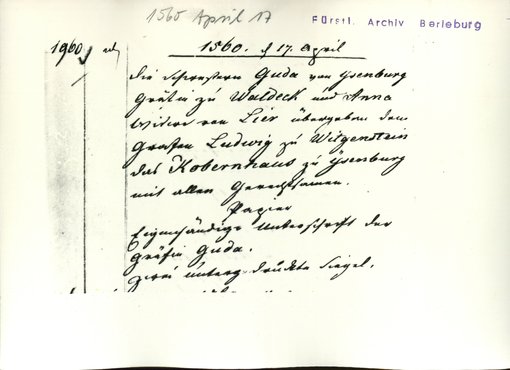 1560 April 17
Fürstl. Archiv Berleburg
1960 1560. d 17. April
die Schwestern Guda von Ysenburg
Gräfin zu Waldeck und Anna
Witwe von Lier übergeben dem
Grafen Ludwig zu Witgenstein
das Kobernhaus zu Ysenburg
mit allen Gerechtsamen.
Papier
Eigenhändige Unterschrift der
Gräfin Guda.
Zwei unterg. druckte Siegel.